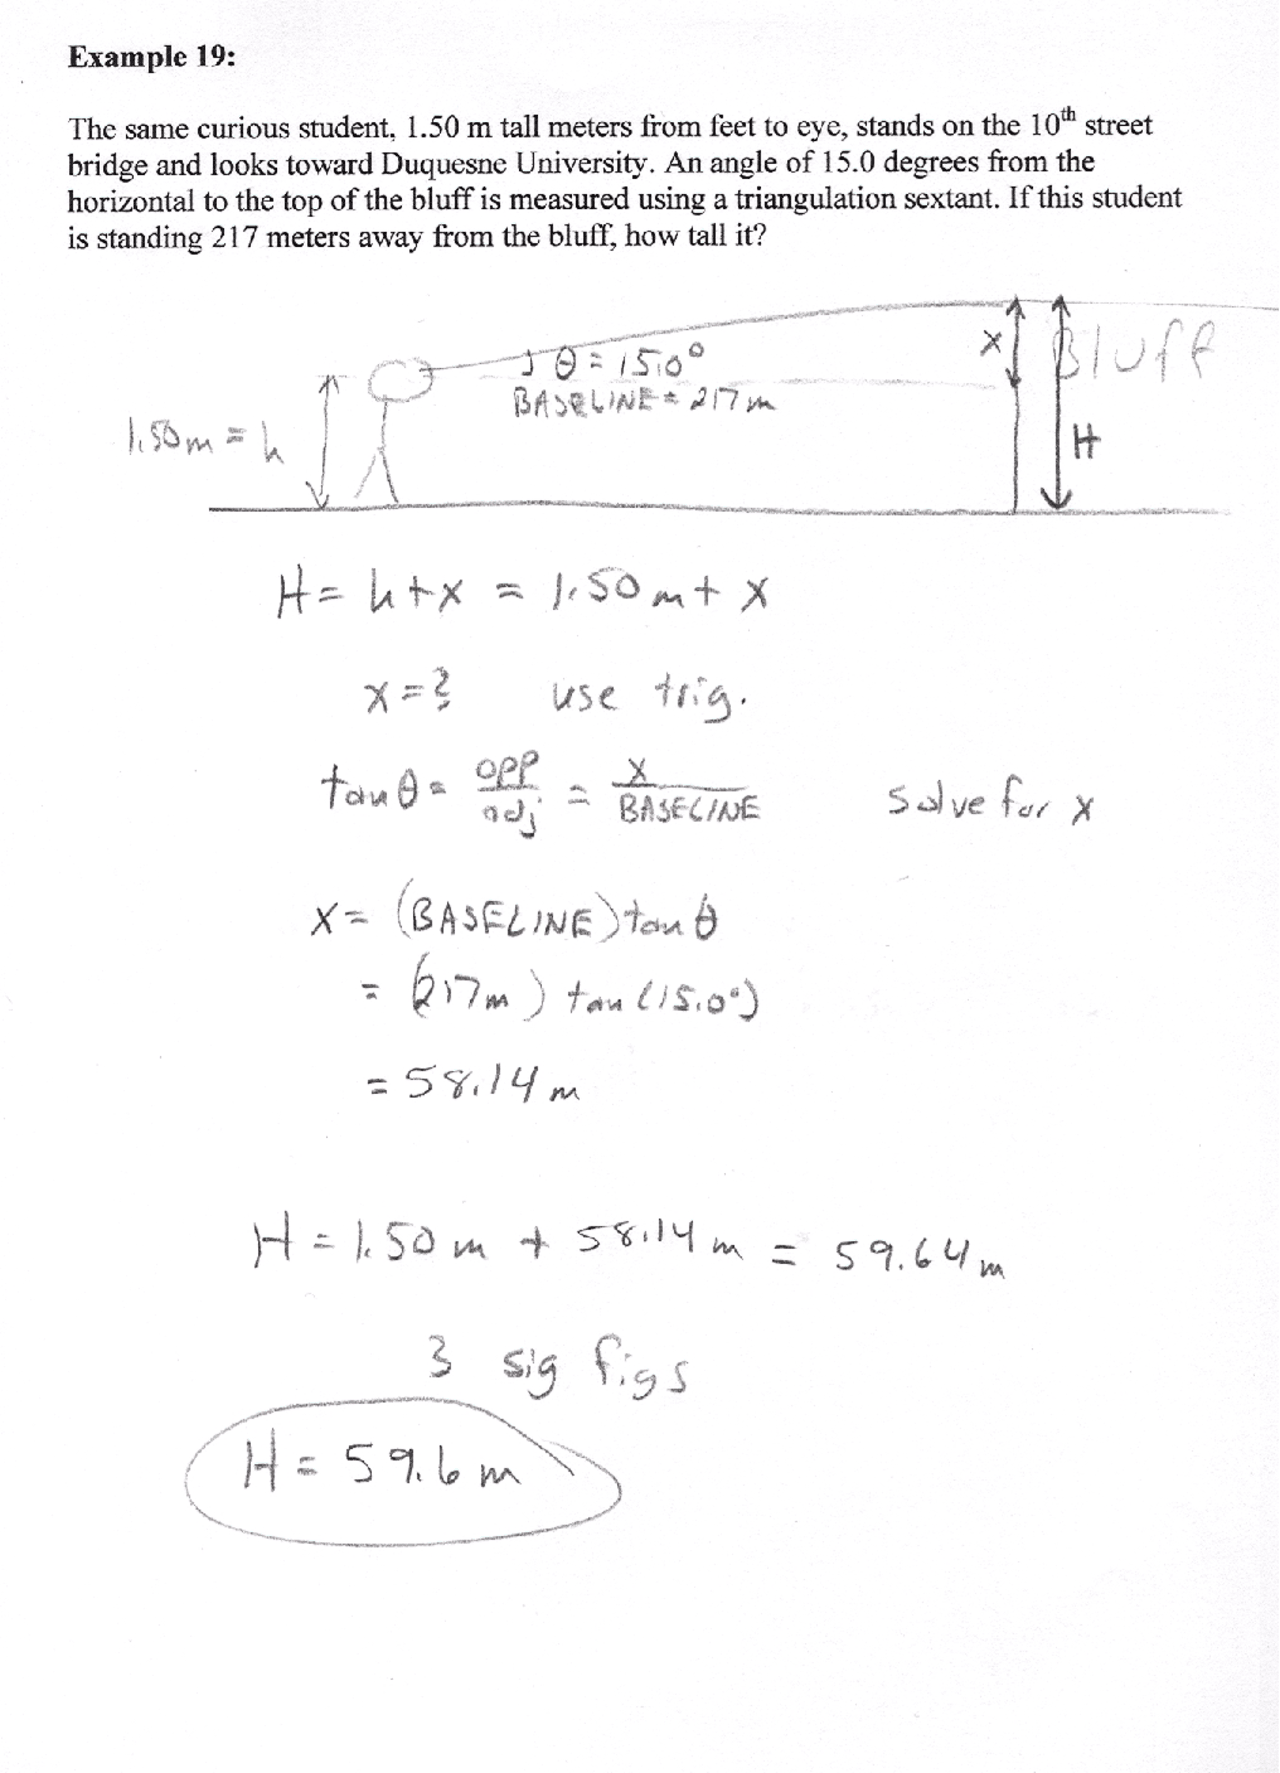 Example 19:
The same curious student, 1.50 m tall meters from feet to eye, stands on the 10th street
bridge and looks toward Duquesne University. An angle of 15.0 degrees from the
horizontal to the top of the bluff is measured using a triangulation sextant. If this student
is standing 217 meters away from the bluff, how tall it?
θ = 15.0°
BASELINE = 217 m
x
Bluff
1.50 m = h
H
H = h + x = 1.50 m + x
x = ? use trig.
tan θ = opp/adj = x/BASELINE solve for x
x = (BASELINE) tan θ
= (217 m) tan (15.0°)
= 58.14 m
H = 1.50 m + 58.14 m = 59.64 m
3 sig figs
H = 59.6 m